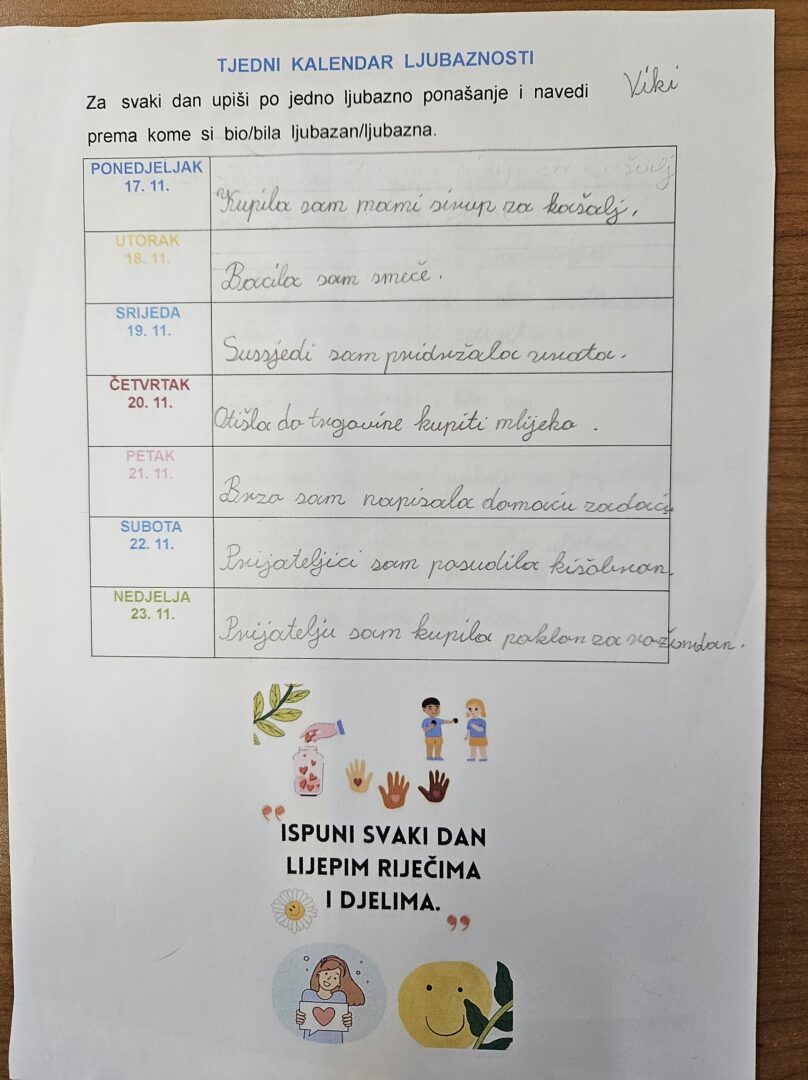 TJEDNI KALENDAR LJUBAZNOSTI
Viki
Za svaki dan upiši po jedno ljubazno ponašanje i navedi
prema kome si bio/bila ljubazan/ljubazna.
PONEDJELJAK
17. 11.
Kupila sam mami sirup za kašalj.
UTORAK
18. 11.
Bacila sam smeće.
SRIJEDA
19. 11.
Sussjedi sam pridržala vrata.
ČETVRTAK
20. 11.
Otišla do trgovine kupiti mlijeko.
PETAK
21. 11.
Brzo sam napisala domaću zadaću
SUBOTA
22. 11.
Prijateljici sam posudila kišobran.
NEDJELJA
23. 11.
Prijatelju sam kupila poklon za rođendan.
" ISPUNI SVAKI DAN
LIJEPIM RIJEČIMA
I DJELIMA. "